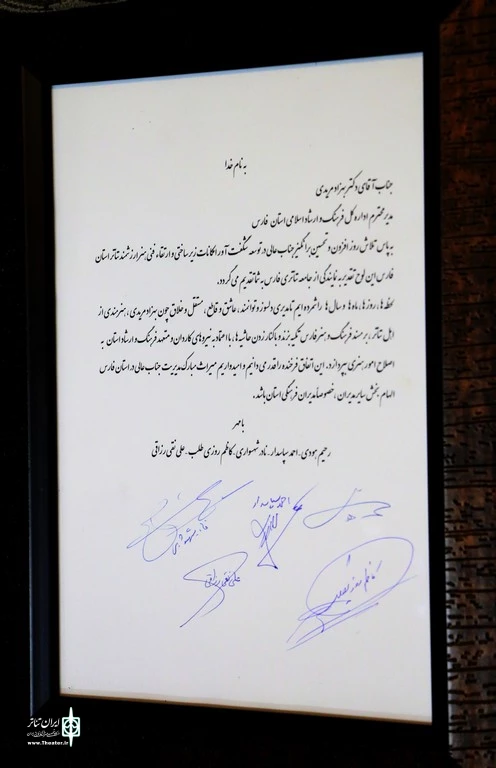 به نام خدا
جناب آقای دکتر بهزاد مریدی
مدیر محترم اداره کل فرهنگ و ارشاد اسلامی استان فارس
به پاس تلاش روز افزون و تحسین برانگیز جناب عالی در توسعه شگفت آور امکانات زیرساختی و ارتقاء فنی هنر ارزشمند تئاتر استان
فارس این لوح تقدیر به نمایندگی از جامعه تئاتری فارس به شما تقدیم می گردد.
لحظه ها، روزها، ماه ها و سال ها را شمرده ایم تا مدیری دلسوز و توانمند، عاشق و قاطع، مستقل و خلاق چون بهزاد مریدی، هنرمندی از
اهل تئاتر، بر مسند فرهنگ و هنر فارس تکیه بزند و با کنار زدن حاشیه ها، با اعتماد به نیروهای کاردان و متعهد فرهنگ و ارشاد استان به
اصلاح امور هنری بپردازد. این اتفاق فرخنده را قدر می دانیم و امیدواریم میراث مبارک مدیریت جناب عالی در استان فارس
الهام بخش سایر مدیران، خصوصاً مدیران فرهنگی استان باشد.
با مهر
رحیم هودی. احمد سپاسدار. نادر شهسواری. کاظم روزی طلب. علی نقی رزاقی
احمد سپاسدار
نادر شهسواری
علی نقی رزاقی
کاظم روزی طلب
ایران تئاتر
www.Theater.ir